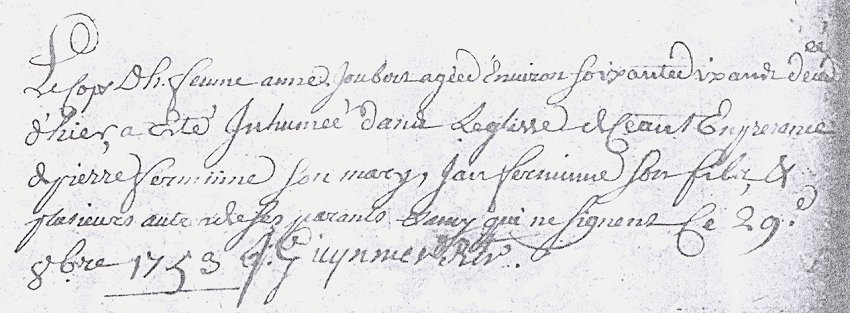 Le Corps d'h. femme anne Joubert agéé Environ soixante dix ans decedé
d'hier, a eté Inhumeé dans Leglise de Ceans En presence
de pierre ferminne son mary, Jan ferminne son fils, &
plusieurs autres de ses parants & amy qui ne signent Ce 29.e
8bre 1753